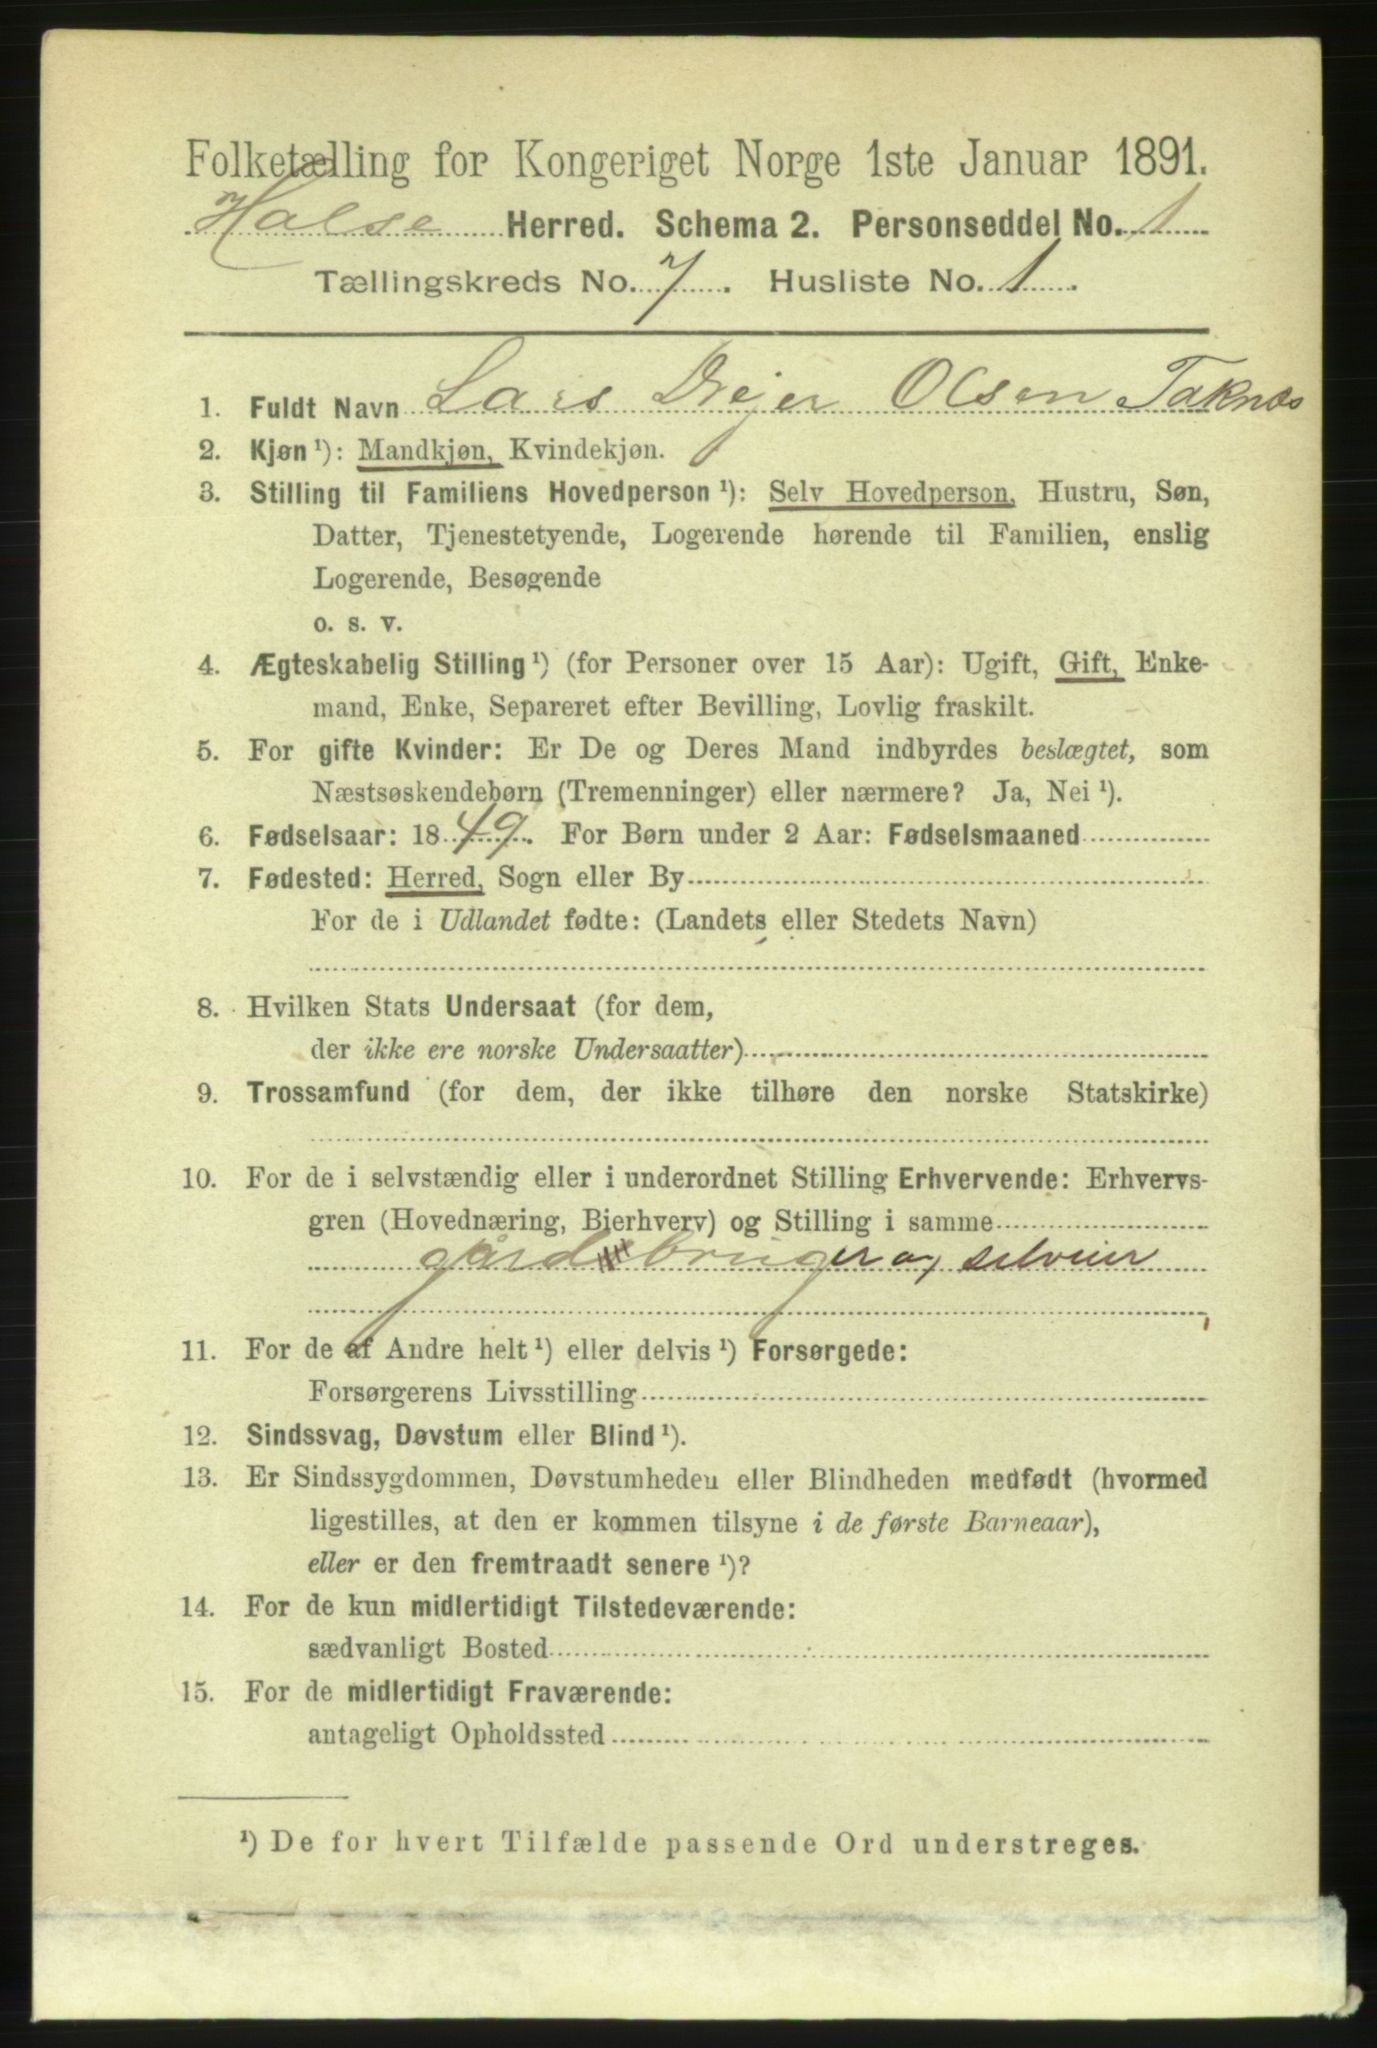 Folketælling for Kongeriget Norge 1ste Januar 1891.
Halse Herred. Schema 2. Personseddel No. 1
Tællingskreds No. 7. Husliste No. 1.
1. Fuldt Navn Lars Drejer Olsen Taknæs
2. Kjøn ¹): Mandkjøn, Kvindekjøn.
3. Stilling til Familiens Hovedperson ¹): Selv Hovedperson, Hustru, Søn,
Datter, Tjenestetyende, Logerende hørende til Familien, enslig
Logerende, Besøgende
o. s. v.
4. Ægteskabelig Stilling ¹) (for Personer over 15 Aar): Ugift, Gift, Enke-
mand, Enke, Separeret efter Bevilling, Lovlig fraskilt.
5. For gifte Kvinder: Er De og Deres Mand indbyrdes beslægtet, som
Næstsøskendebørn (Tremenninger) eller nærmere? Ja, Nei ¹).
6. Fødselsaar: 1849. For Børn under 2 Aar: Fødselsmaaned
7. Fødested: Herred, Sogn eller By
For de i Udlandet fødte: (Landets eller Stedets Navn)
8. Hvilken Stats Undersaat (for dem,
der ikke ere norske Undersaatter)
9. Trossamfund (for dem, der ikke tilhøre den norske Statskirke)
10. For de i selvstændig eller i underordnet Stilling Erhvervende: Erhvervs-
gren (Hovednæring, Bierhverv) og Stilling i samme
gårdbruger og selveier
11. For de af Andre helt ¹) eller delvis ¹) Forsørgede:
Forsørgerens Livsstilling
12. Sindssvag, Døvstum eller Blind ¹).
13. Er Sindssygdommen, Døvstumheden eller Blindheden medfødt (hvormed
ligestilles, at den er kommen tilsyne i de første Barneaar),
eller er den fremtraadt senere ¹)?
14. For de kun midlertidigt Tilstedeværende:
sædvanligt Bosted
15. For de midlertidigt Fraværende:
antageligt Opholdssted
¹) De for hvert Tilfælde passende Ord understreges.